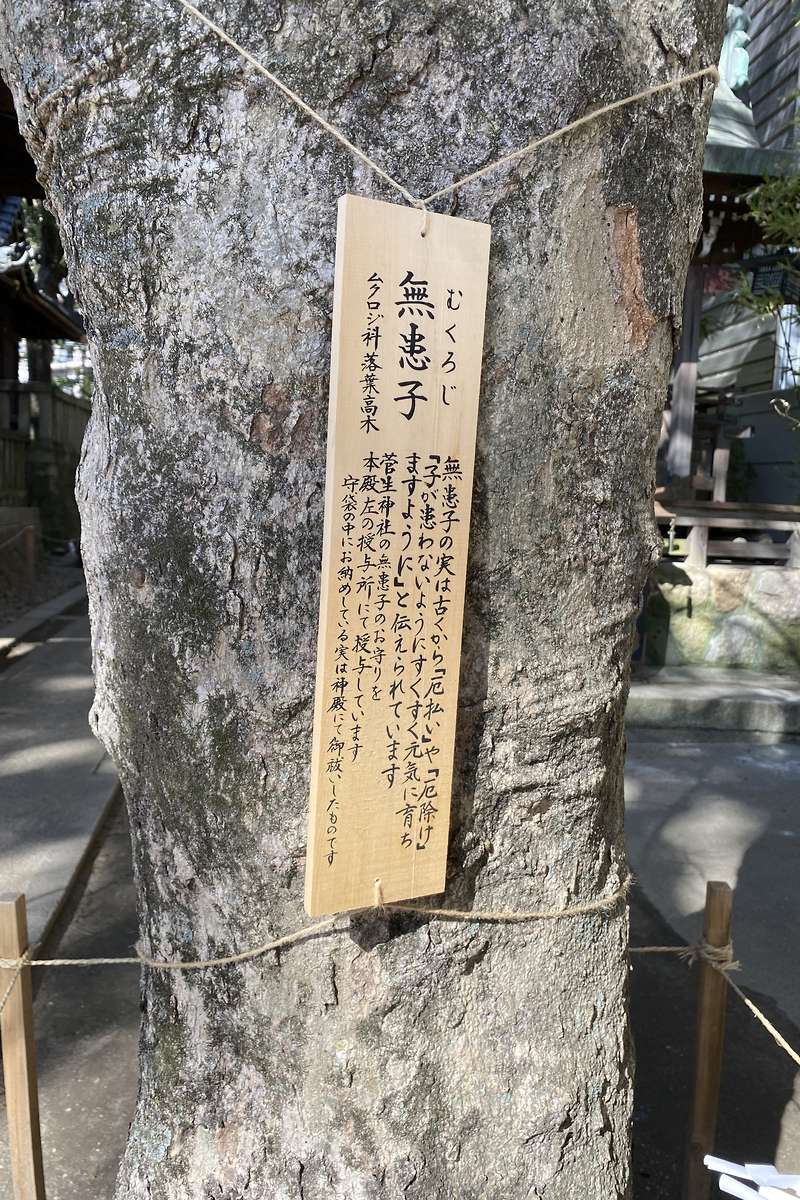 むくろじ
無患子
ムクロジ科 落葉高木
無患子の実は古くから「厄払い」や「厄除け」
「子が患わないようにすくすく元気に育ち
ますように」と伝えられています
菅生神社の無患子のお守りを
本殿左の授与所にて授与しています
守袋の中にお納めしている実は神殿にて御祓いしたものです